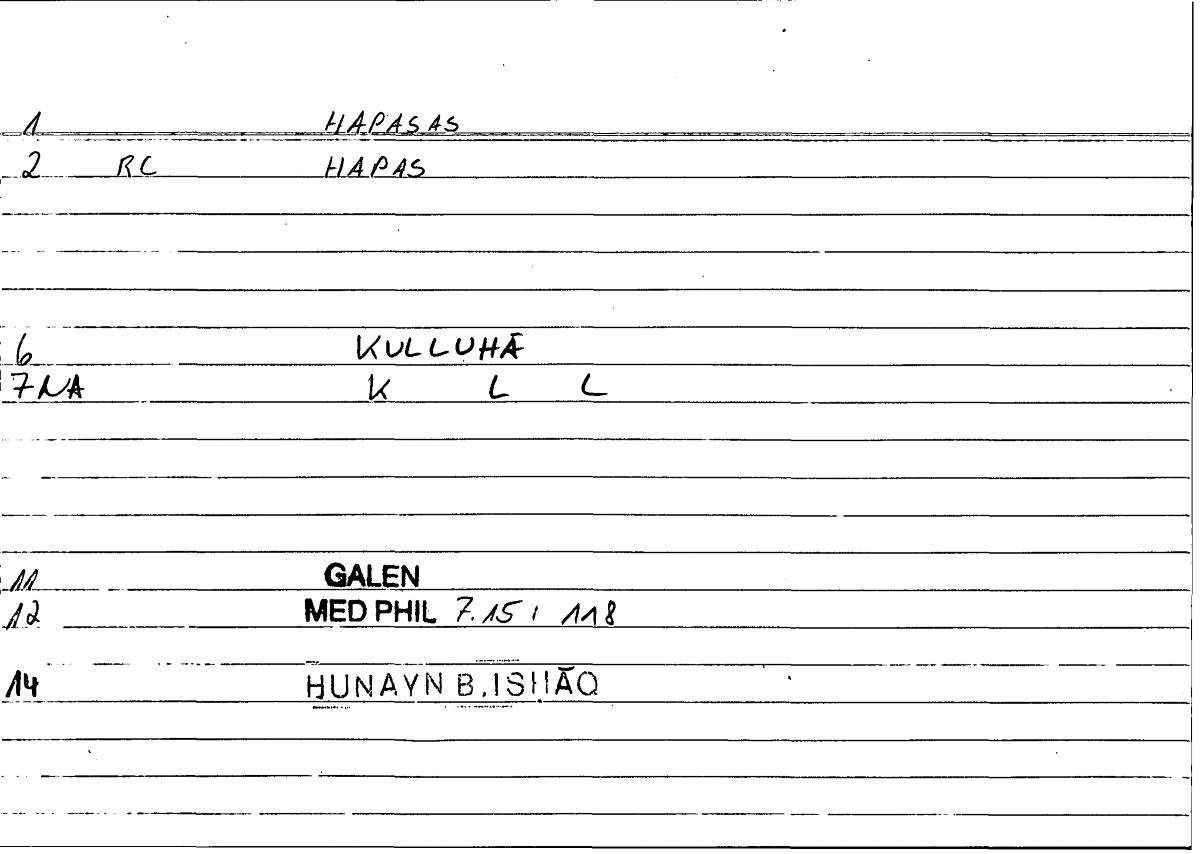 1 HAPASAS
2 RC HAPAS
6 KULLUHĀ
7 NA K L L
11 GALEN
12 MED PHIL 7.15 ; 118
14 HUNAYN B. ISḤĀQ